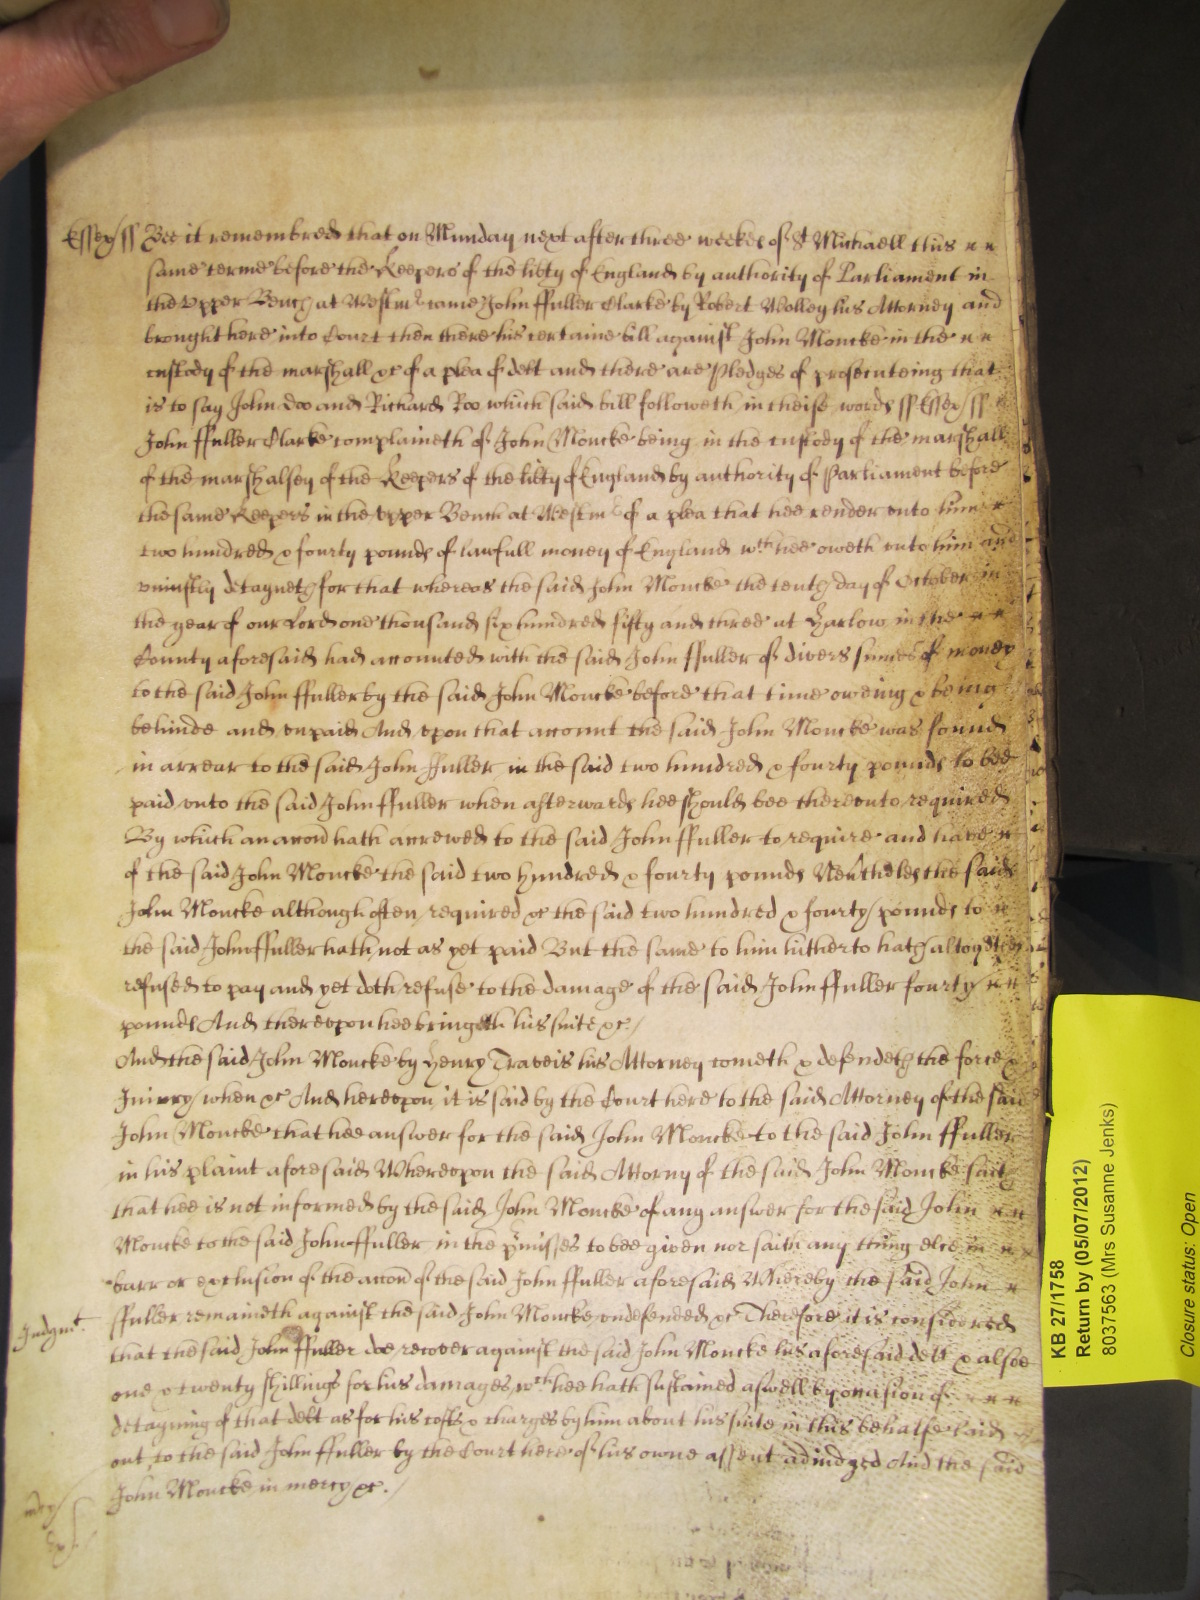 Essex/ss Bee it remembred that on Munday next after three weekes of St Michaell this
same terme before the Keepers of the libty of England by authority of Parliament in
the Upper Bench at Westmr came John ffuller Clarke by Robert Wolley his Attorney and
brought here into Court then there his certaine bill against John Moncke in the
custody of the marshall &c of a plea of debt and there are pledges of prosecuteing that
is to say John Doo and Richard Roo which said bill followeth in theise words ss Essex/ss
John ffuller Clarke complaineth of John Moncke being in the custody of the marshall
of the marshalsey of the Keepers of the libty of England by authority of Parliament before
the same Keepers in the upper Bench at Westmr of a plea that hee render unto him
two hundred & fourty pounds of lawfull money of England wch hee oweth unto him and
uniustly detayneth for that whereas the said John Moncke the tenth day of October in
the year of our Lord one thousand six hundred fifty and three at Harlow in the
County aforesaid had accounted with the said John ffuller of divers summes of money
to the said John ffuller by the said John Moncke before that time oweing & being
behinde and unpaid And upon that account the said John Moncke was found
in arrear to the said John ffuller in the said two hundred & fourty pounds to bee
paid unto the said John ffuller when afterwards hee should bee thereunto required
By which an accon hath accrewed to the said John ffuller to require and have
of the said John Moncke the said two hundred & fourty pounds Nevtheles the said
John Moncke although often required &c the said two hundred & fourty pounds to
the said John ffuller hath not as yet paid But the same to him hitherto hath altogether
refused to pay and yet doth refuse to the damage of the said John ffuller fourty
pounds And thereupon hee bringeth his suite &c/
And the said John Moncke by Henry Traveis his Attorney cometh & defendeth the force &
Iniury when &c And hereupon it is said by the Court here to the said Attorney of the said
John Moncke that hee answer for the said John Moncke to the said John ffuller
in his plaint aforesaid Whereupon the said Attorny of the said John Moncke saith
that hee is not informed by the said John Moncke of any answer for the said John
Moncke to the said John ffuller in the pmisses to bee given nor saith any thing else in
barr or exclusion of the accon of the said John ffuller aforesaid Whereby the said John
ffuller remaineth against the said John Moncke undefended &c Therefore it is considered
Judgmt. that the said John ffuller doe recover against the said John Moncke his aforesaid debt & alsoe
one & twenty shillings for his damages wch hee hath sustained aswell by occasion of
detayning of that debt as for his costs & charges by him about his suite in this behalfe laid
out to the said John ffuller by the Court here of his owne assent adiudged And the said
John Moncke in mercy &c./
mcy/
KB 27/1758
Return by (05/07/2012)
8037563 (Mrs Susanne Jenks)
Closure status: Open